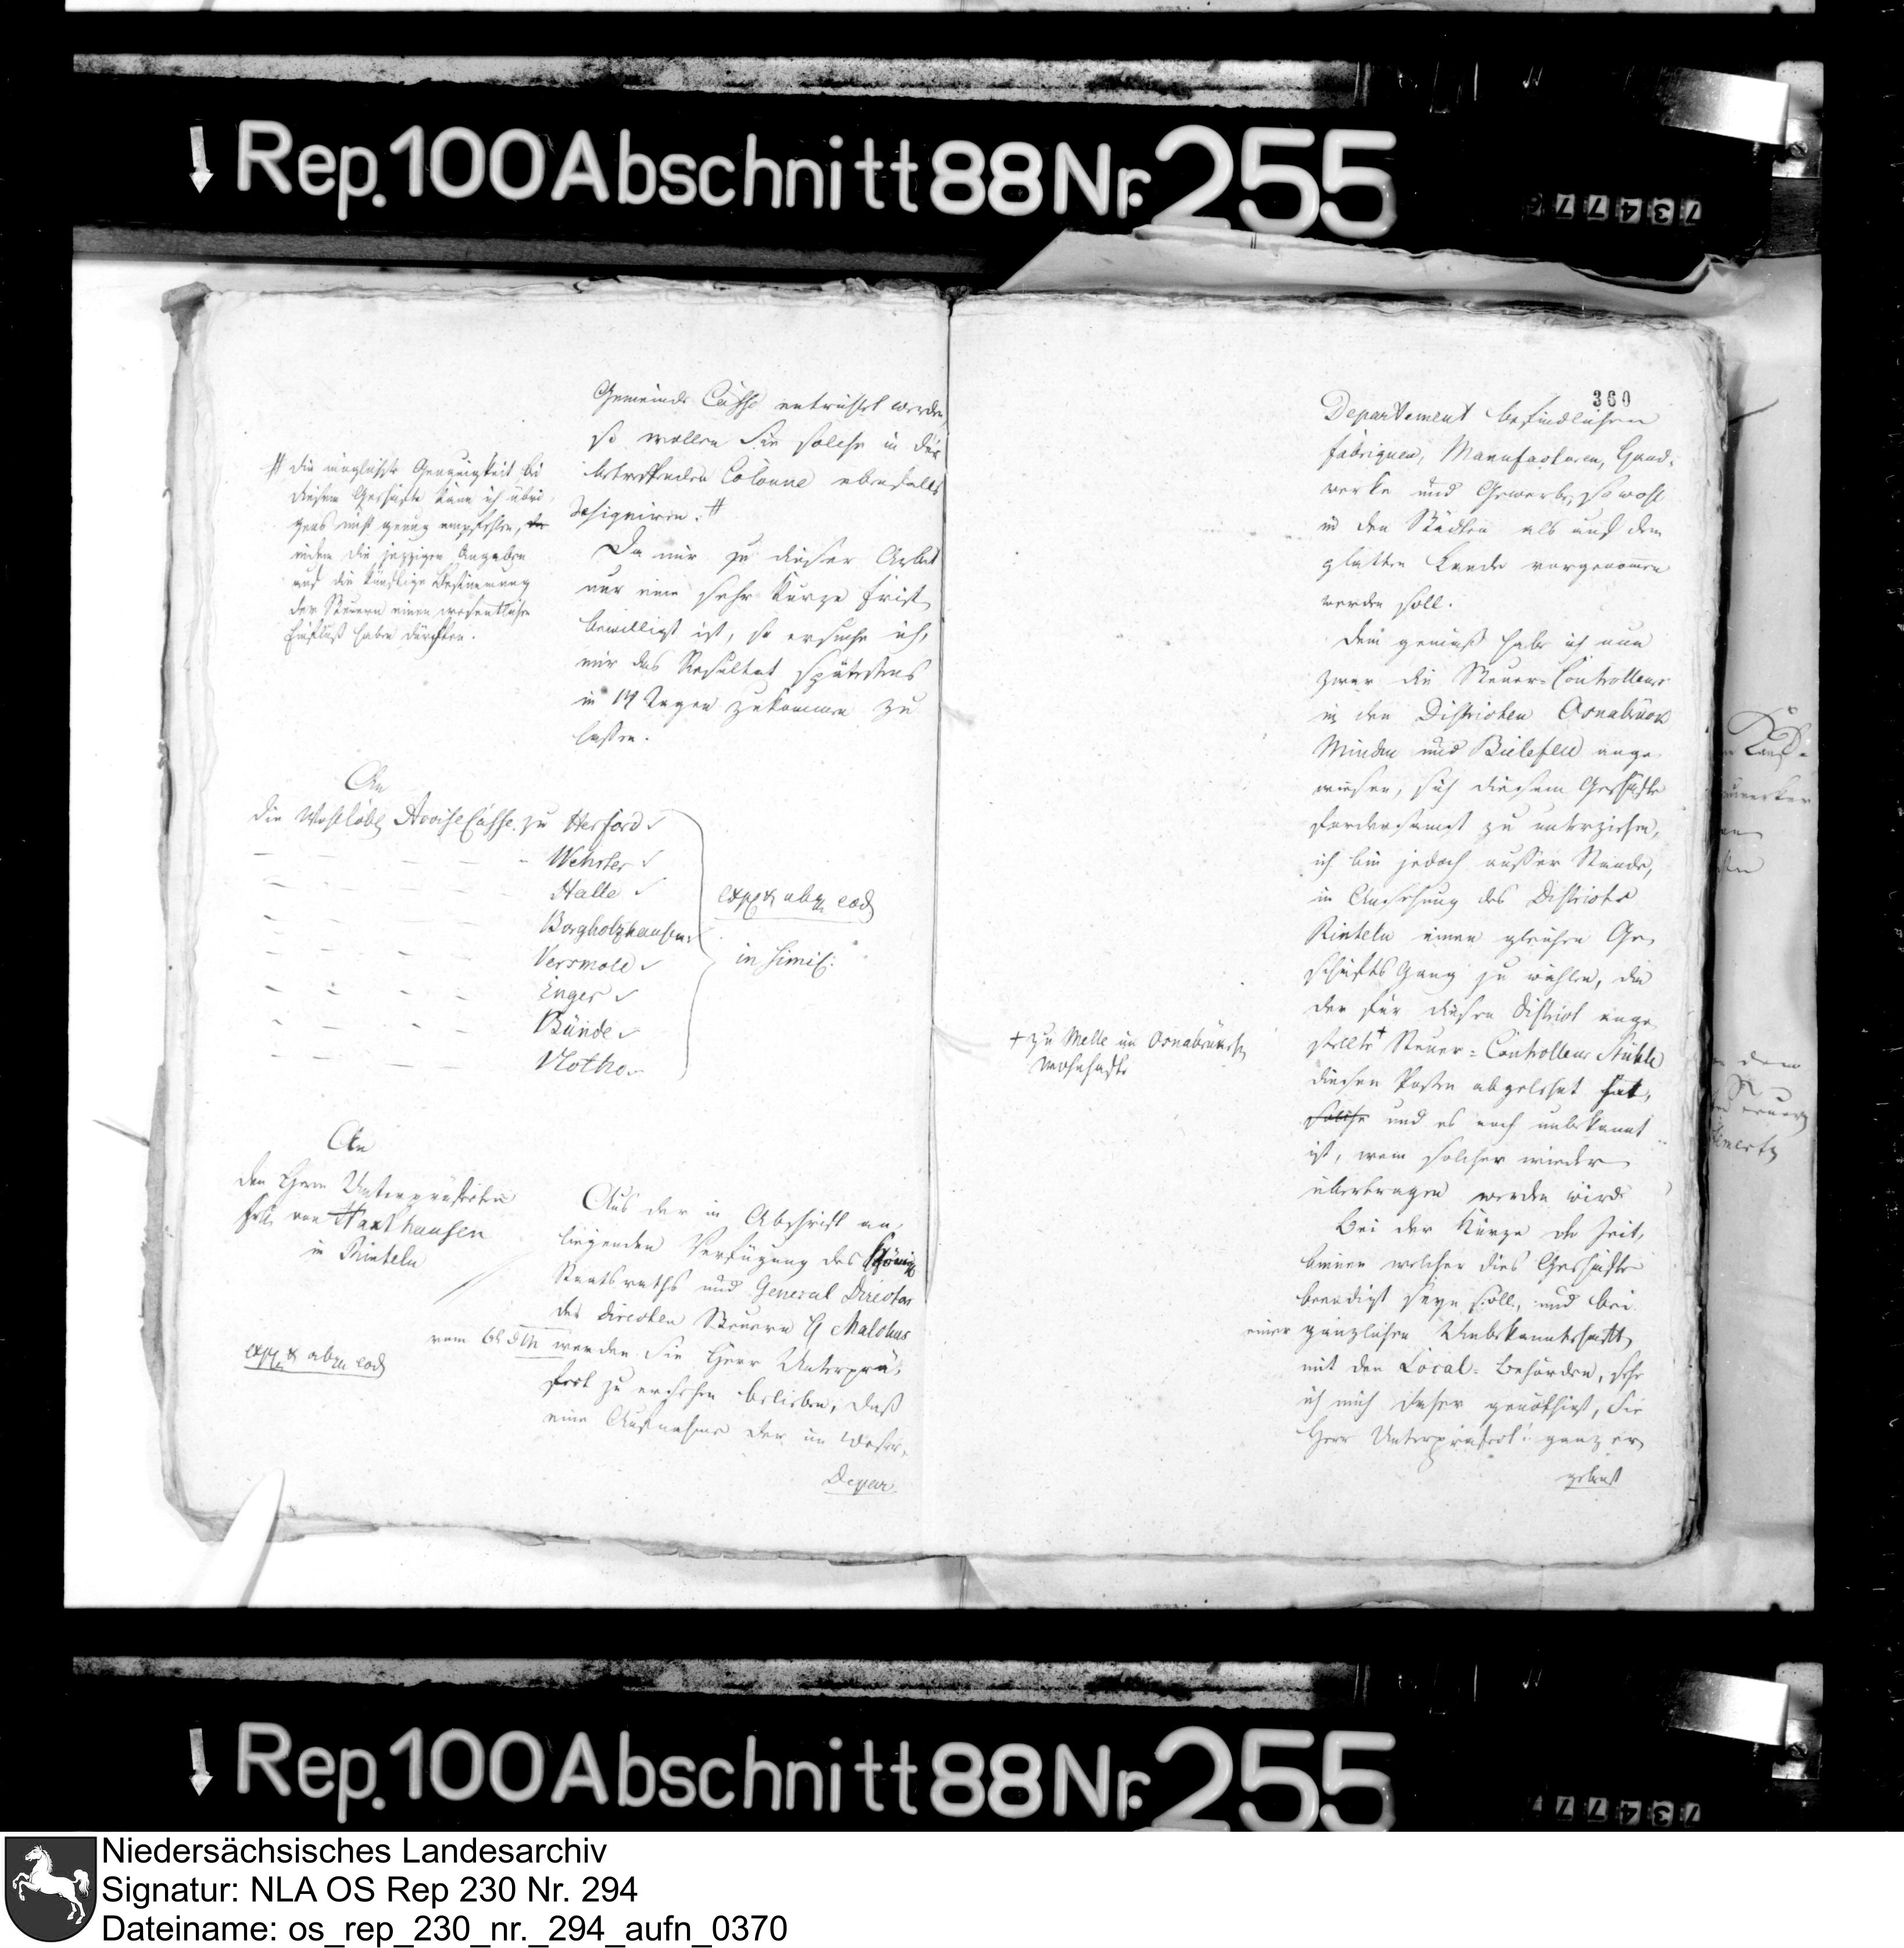 Rep. 100 Abschnitt 88 Nr. 255
Gemeinde Casse entrichtet werden,
so wollen Sie solche in der
betreffenden Colonne ebenfalls
designiren. #
# die möglichste Genauigkeit bei
diesem Geschäfte kann ich übri
gens nicht genug empfehlen,
indem die jezzigen Angaben
auf die künftige Bestimmung
der Steuern einen wesentlichen
Einfluß haben dürften.
Da mir zu dieser Arbeit
nur eine sehr kurze Frist
bewilligt ist, so ersuche ich,
mir das Resultat spätestens
in 14 Tagen zukommen zu
lassen.
An
die Wohllöbl. Accise Casse zu Herford
Wehrter
Halle
Borgholzhausen
Versmold
Enger
Bünde
Vlotho
in simil:
An
den Herrn Unterpräfecten
von Haxthausen
in Rinteln
Aus der in Abschrift an
liegenden Verfügung des Königl.
Staatsraths und General Director
der directen Steuern H Malchus
vom werden Sie Herr Unterprä-
fect zu ersehen belieben, daß
eine Aufnahme der im Weser-
Depar-
360
Departement befindlichen
Fabriquen, Manufacturen, Hand-
werke und Gewerbe, sowohl
in den Städten als auf dem
platten Lande vorgenommen
werden soll.
Dem gemäß habe ich nun
zwar die Steuer-Controlleurs
in den Districten Osnabrück
Minden und Bielefeld ange
wiesen, sich diesem Geschäfte
fordersamst zu unterziehen,
ich bin jedoch außer Stande,
in Ansehung des Districts
Rinteln einen gleichen Ge
schäfts Gang zu wählen, da
der für diesen District ange
stellte + Steuer-Controlleur Stühle
+ zu Melle im Osnabrückschen
wohnhafte
diesen Posten abgelehnt hat,
solche und es noch unbekannt
ist, wem solcher wieder
übertragen werden wird.
Bei der Kürze der Zeit,
binnen welcher dies Geschäfte
beendigt seyn soll, und bei
einer gänzlichen Unbekanntschaft
mit den Local-Behörden, sehe
ich mich daher genöthigt, Sie
Herr Unterpräfect ganz er
gebenst
Rep. 100 Abschnitt 88 Nr. 255
Niedersächsisches Landesarchiv
Signatur: NLA OS Rep 230 Nr. 294
Dateiname: os_rep_230_nr._294_aufn_0370